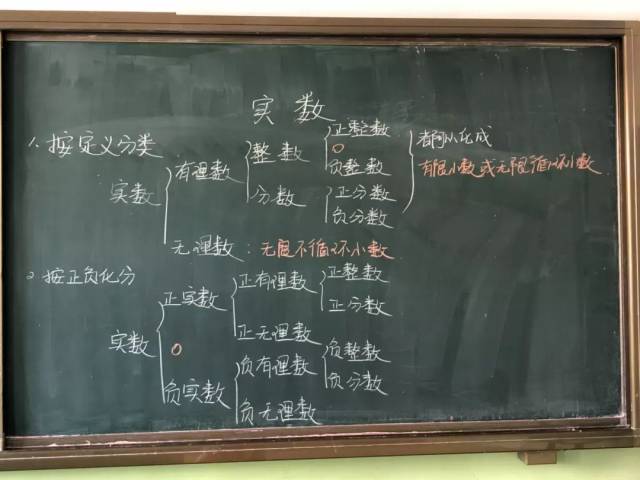 实数
1、按定义分类
实数 有理数 整数 正整数
0
负整数
分数 正分数
负分数
都可以化成
有限小数或无限循环小数
无理数：无限不循环小数
2、按正负化分
实数 正实数 正有理数 正整数
正分数
正无理数
0
负实数 负有理数 负整数
负分数
负无理数